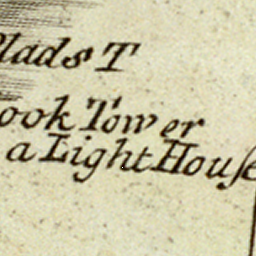 lads T
ook Tower
a Light Houſe